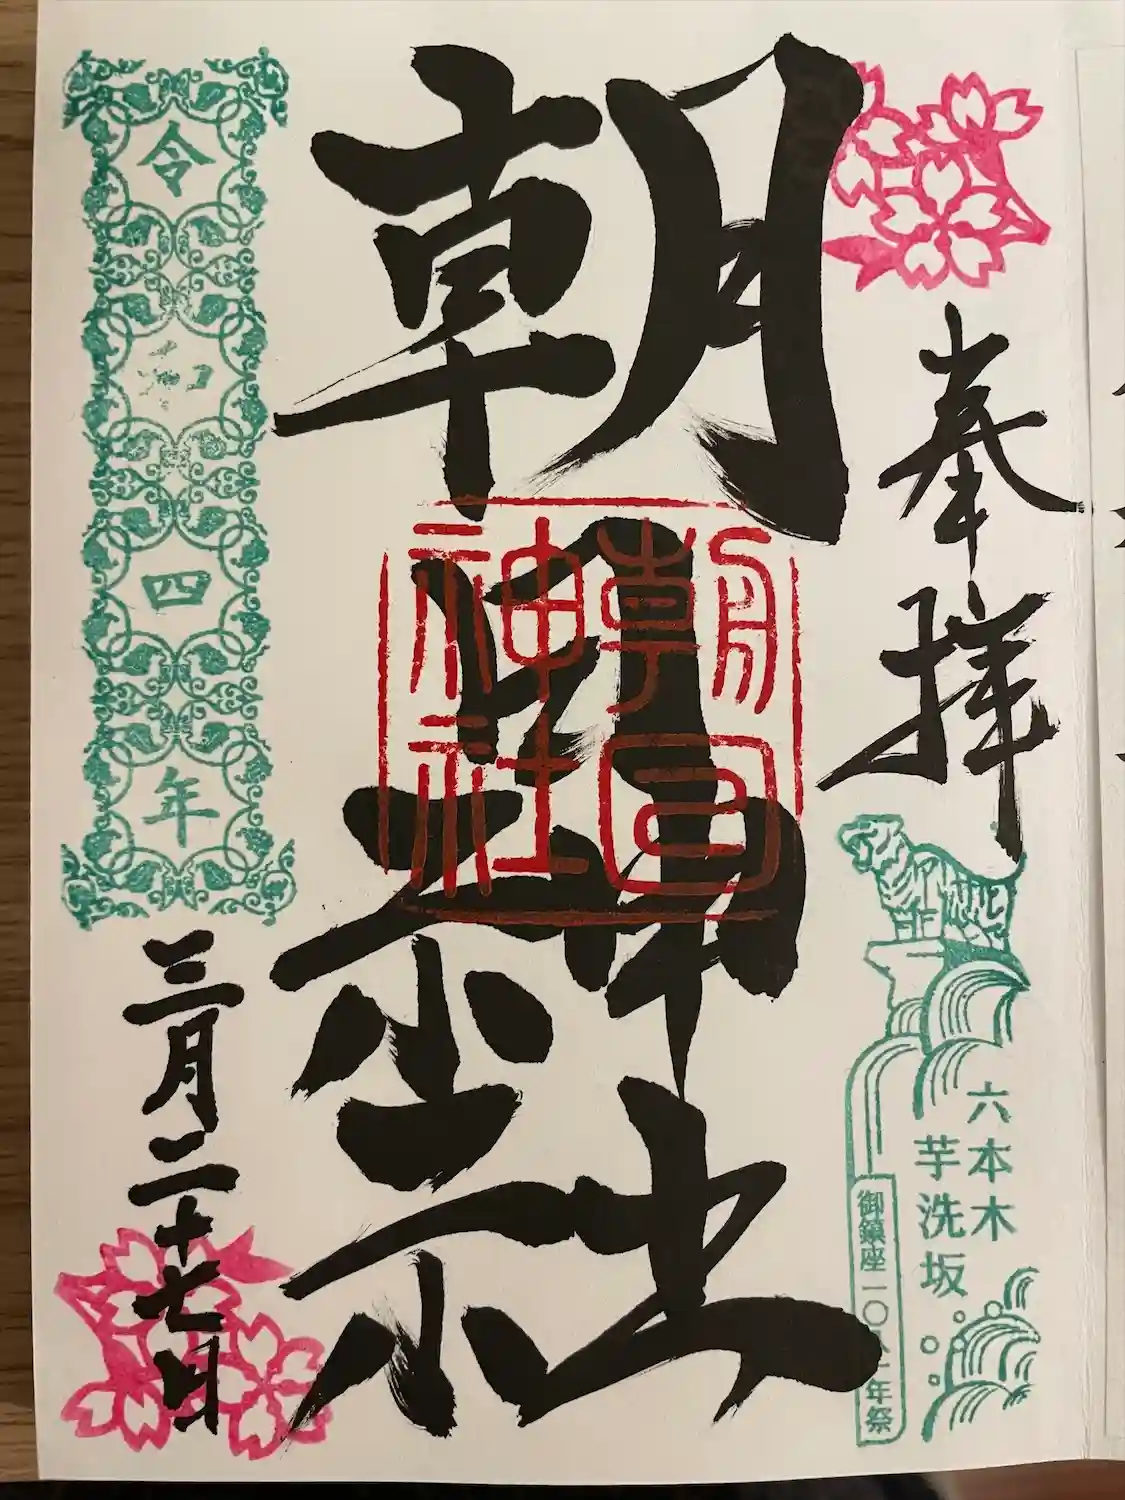 奉拝
六本木
芋洗坂
御鎮座一〇八一年祭
朝日神社
朝日
神社
令和四年
三月二十七日